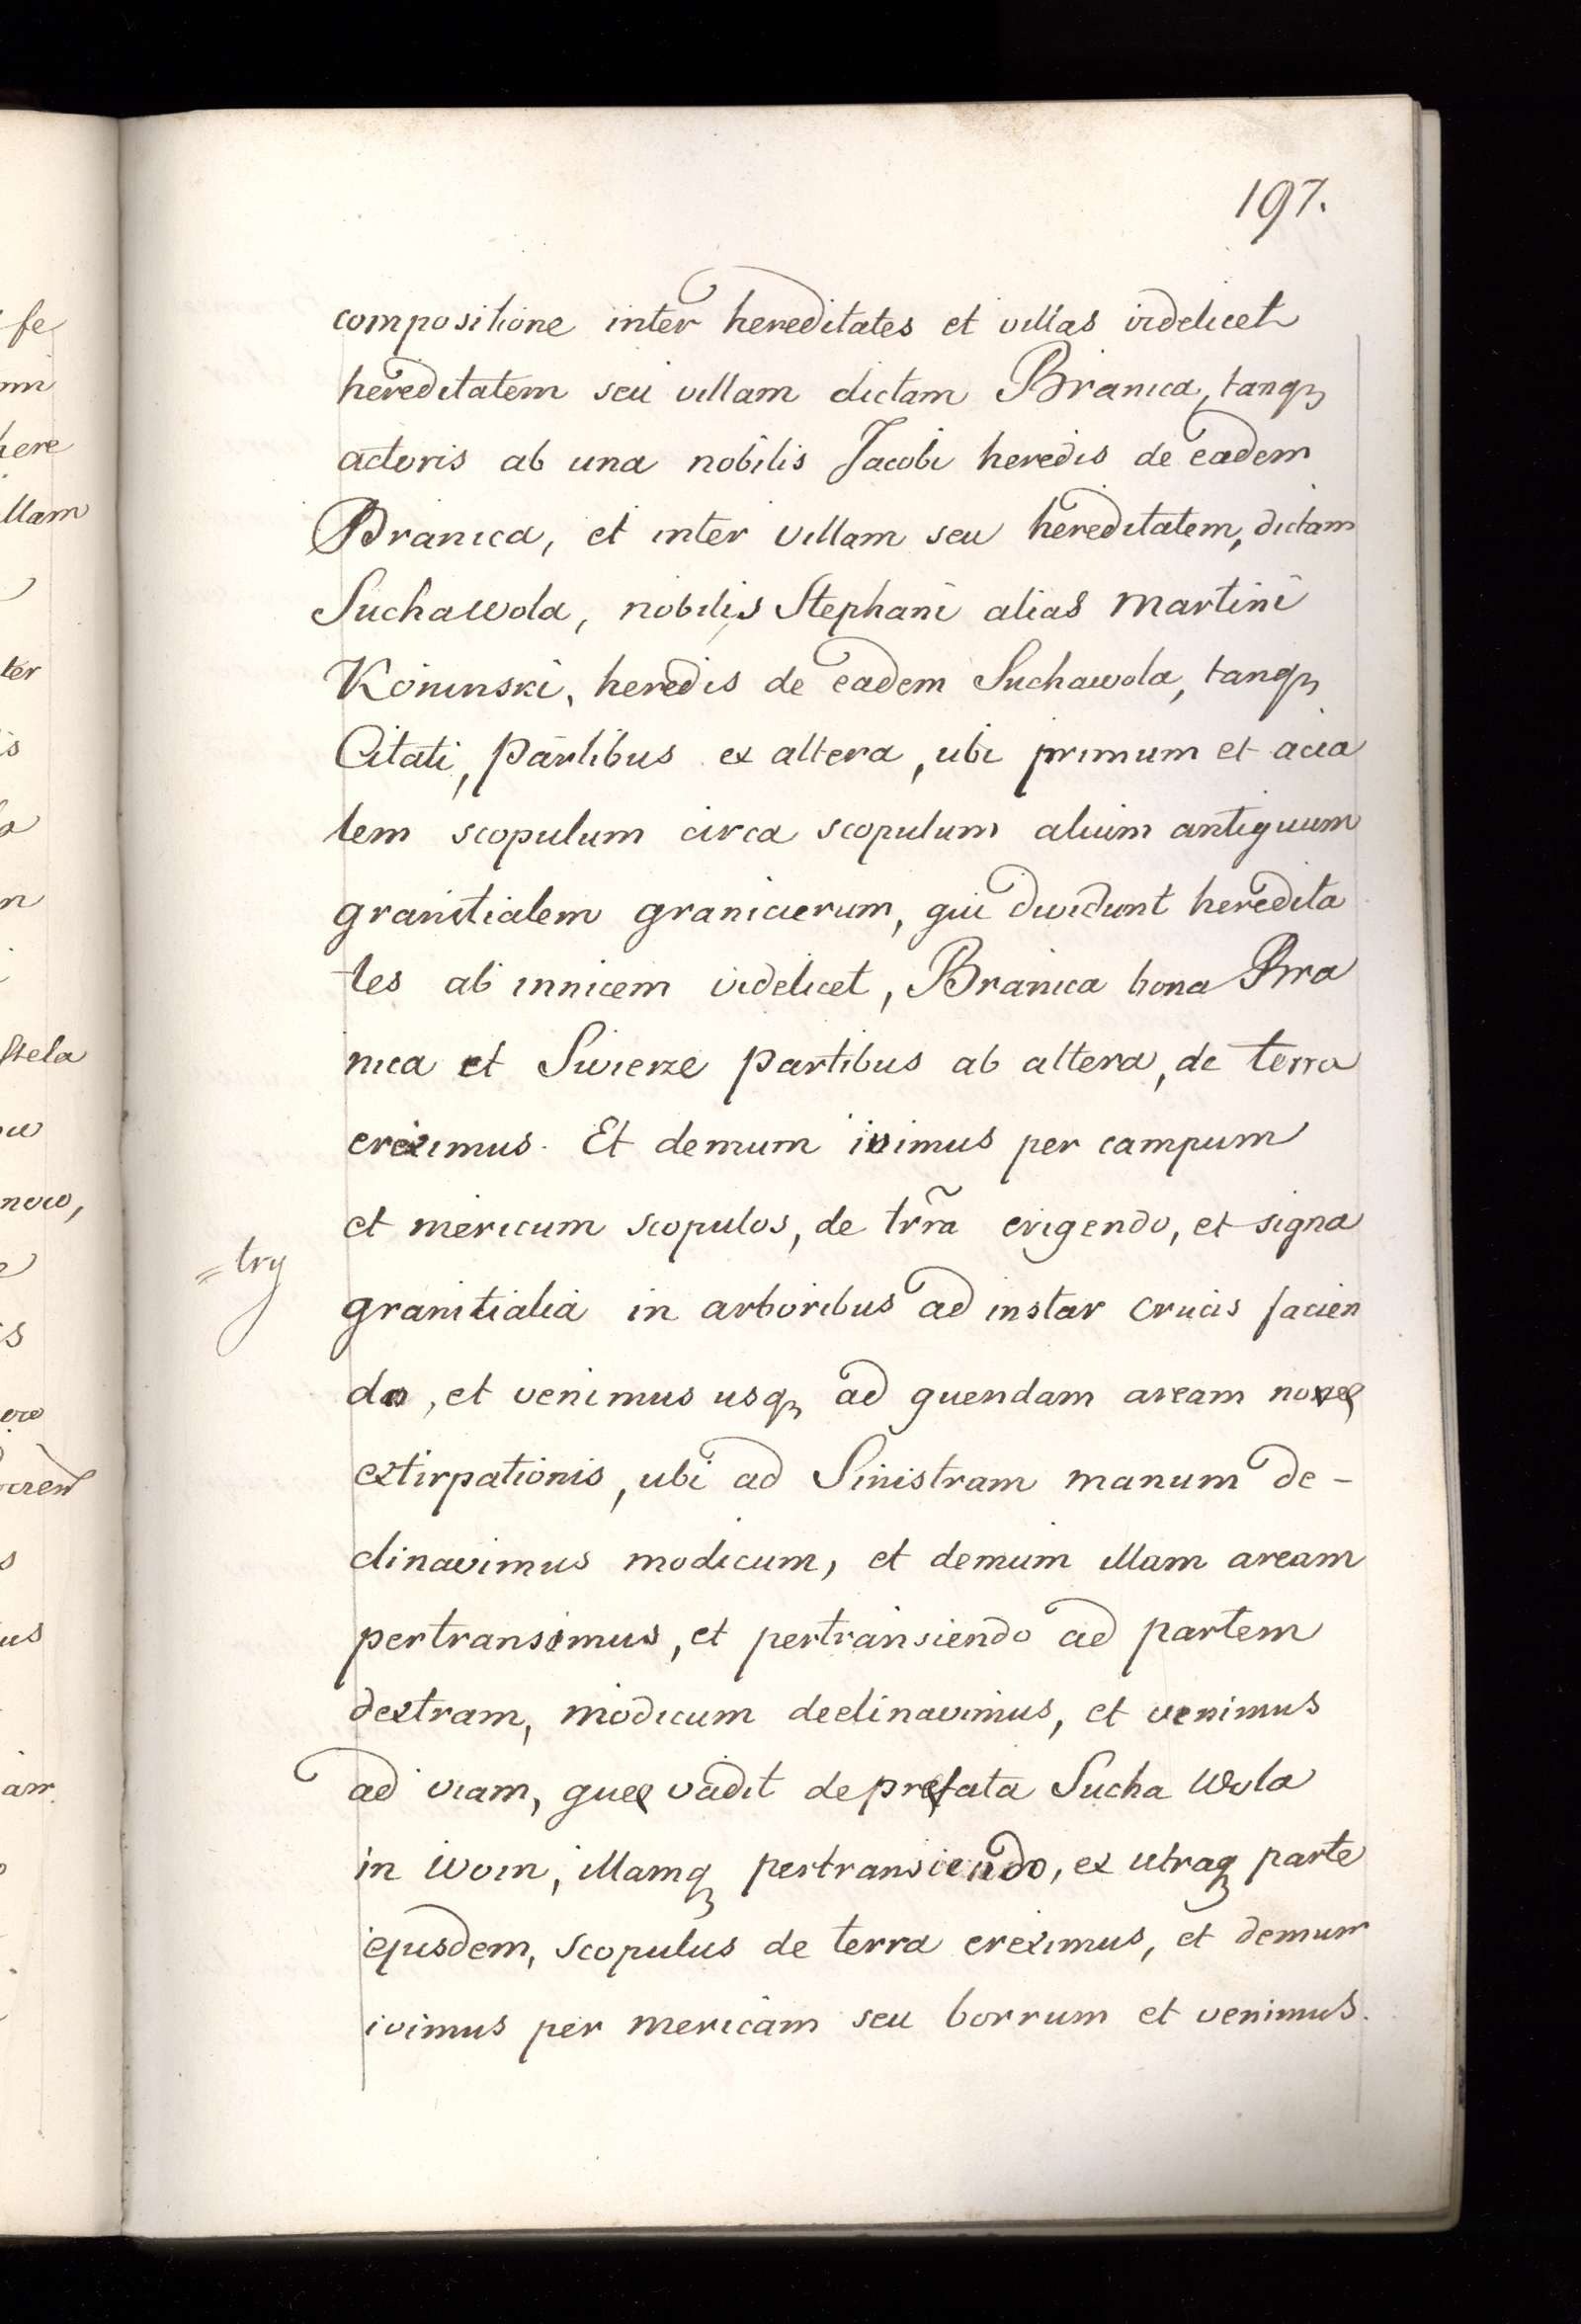 197.
compositione inter hereditates et villas videlicet
hereditatem seu villam dictam Branica, tanqȝ
actoris ab una nobilis Jacobi heredis de eadem
Branica, et inter villam seu hereditatem, dictam
Suchawola, nobilis Stephani alias Martini
heredis de eadem Suchawola, tanqȝ
Citati, partibus ex altera, ubi primum et acia
lem scopulum circa scopulum alium antiquum
granitialem granicierum, qui dividunt heredita
tes ab innicem videlicet, Branica bona Bra
nica et Swierze partibus ab altera, de terra
ereximus. Et demum ivimus per campum
et mericum scopulos, de trr̃a erigendo, et signa
=try
granitialia in arboribus ad instar crucis facien
do, et venimus usqȝ ad quendam aream novę
extirpationis, ubi ad Sinistram manum de-
clinavimus modicum, et demum illam aream
pertransimus, et pertransiendo ad partem
dextram, modicum declinavimus, et venimus
ad viam, quę vadit de pręfata Sucha Wola
in Woin, illamqȝ pertransiendo, ex utraqȝ parte
ejusdem, scopulus de terra ereximus, et demum
ivimus per mericam seu borrum et venimus.
fe
mi
here
llam
ter
is
n
stela
nowo,
us